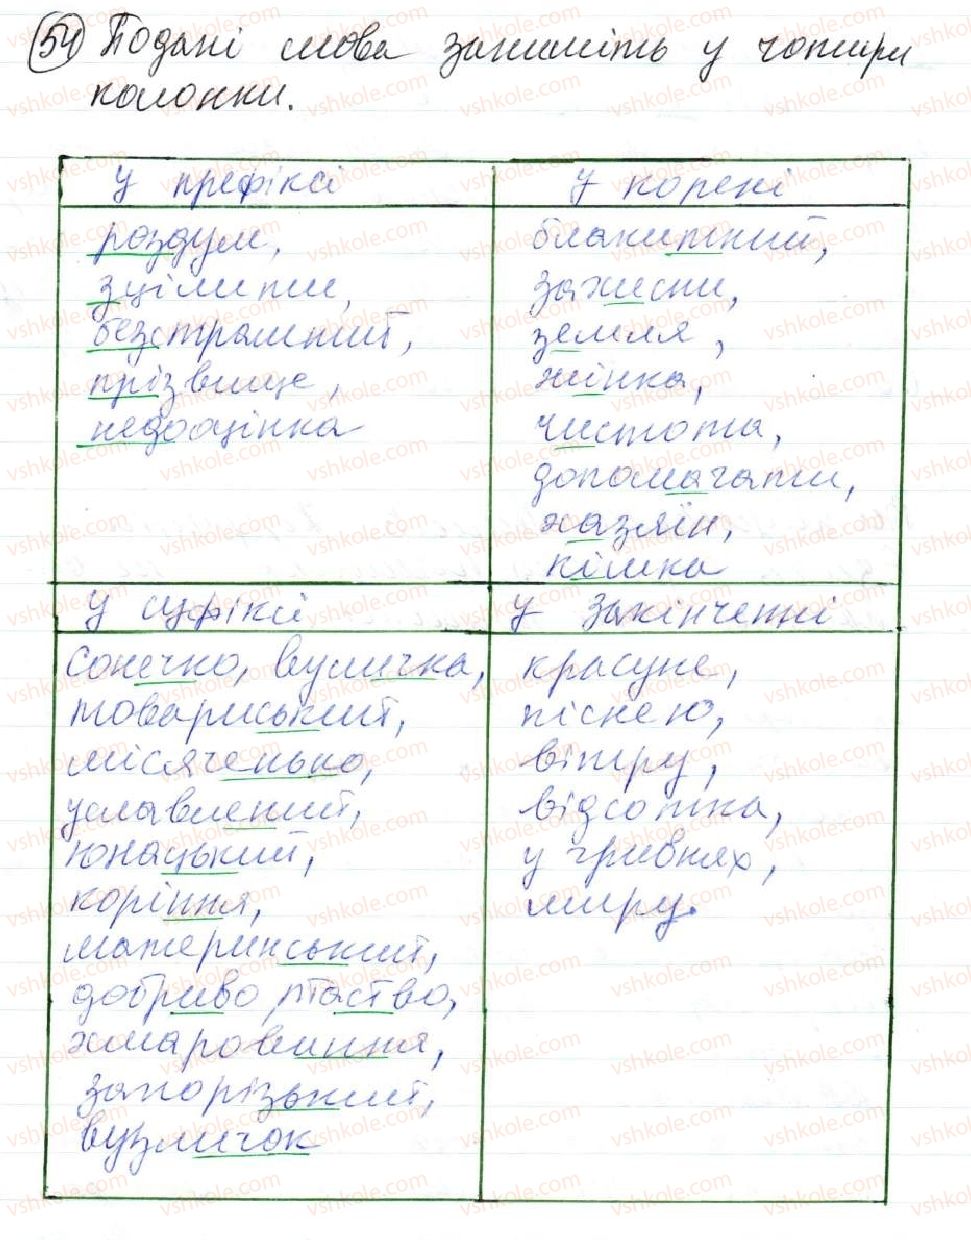 54 Подані слова запишіть у чотири
колонки.
у префіксі
роздум,
зцілити,
безстрашний,
прізвище,
недооцінка
у корені
блакитний,
захисти,
земля,
жінка,
чистота,
допомагати,
хазяїн,
кішка
у суфіксі
сонечко, вуличка,
товариський,
місяченько,
уславлений,
юнацький,
коріння,
материнський,
добриво, птаство,
хмаровиння,
запорізький,
вузличок
у закінченні
красуне,
піснею,
вітру,
відсотка,
у гривнях,
миру.
vshkole.com